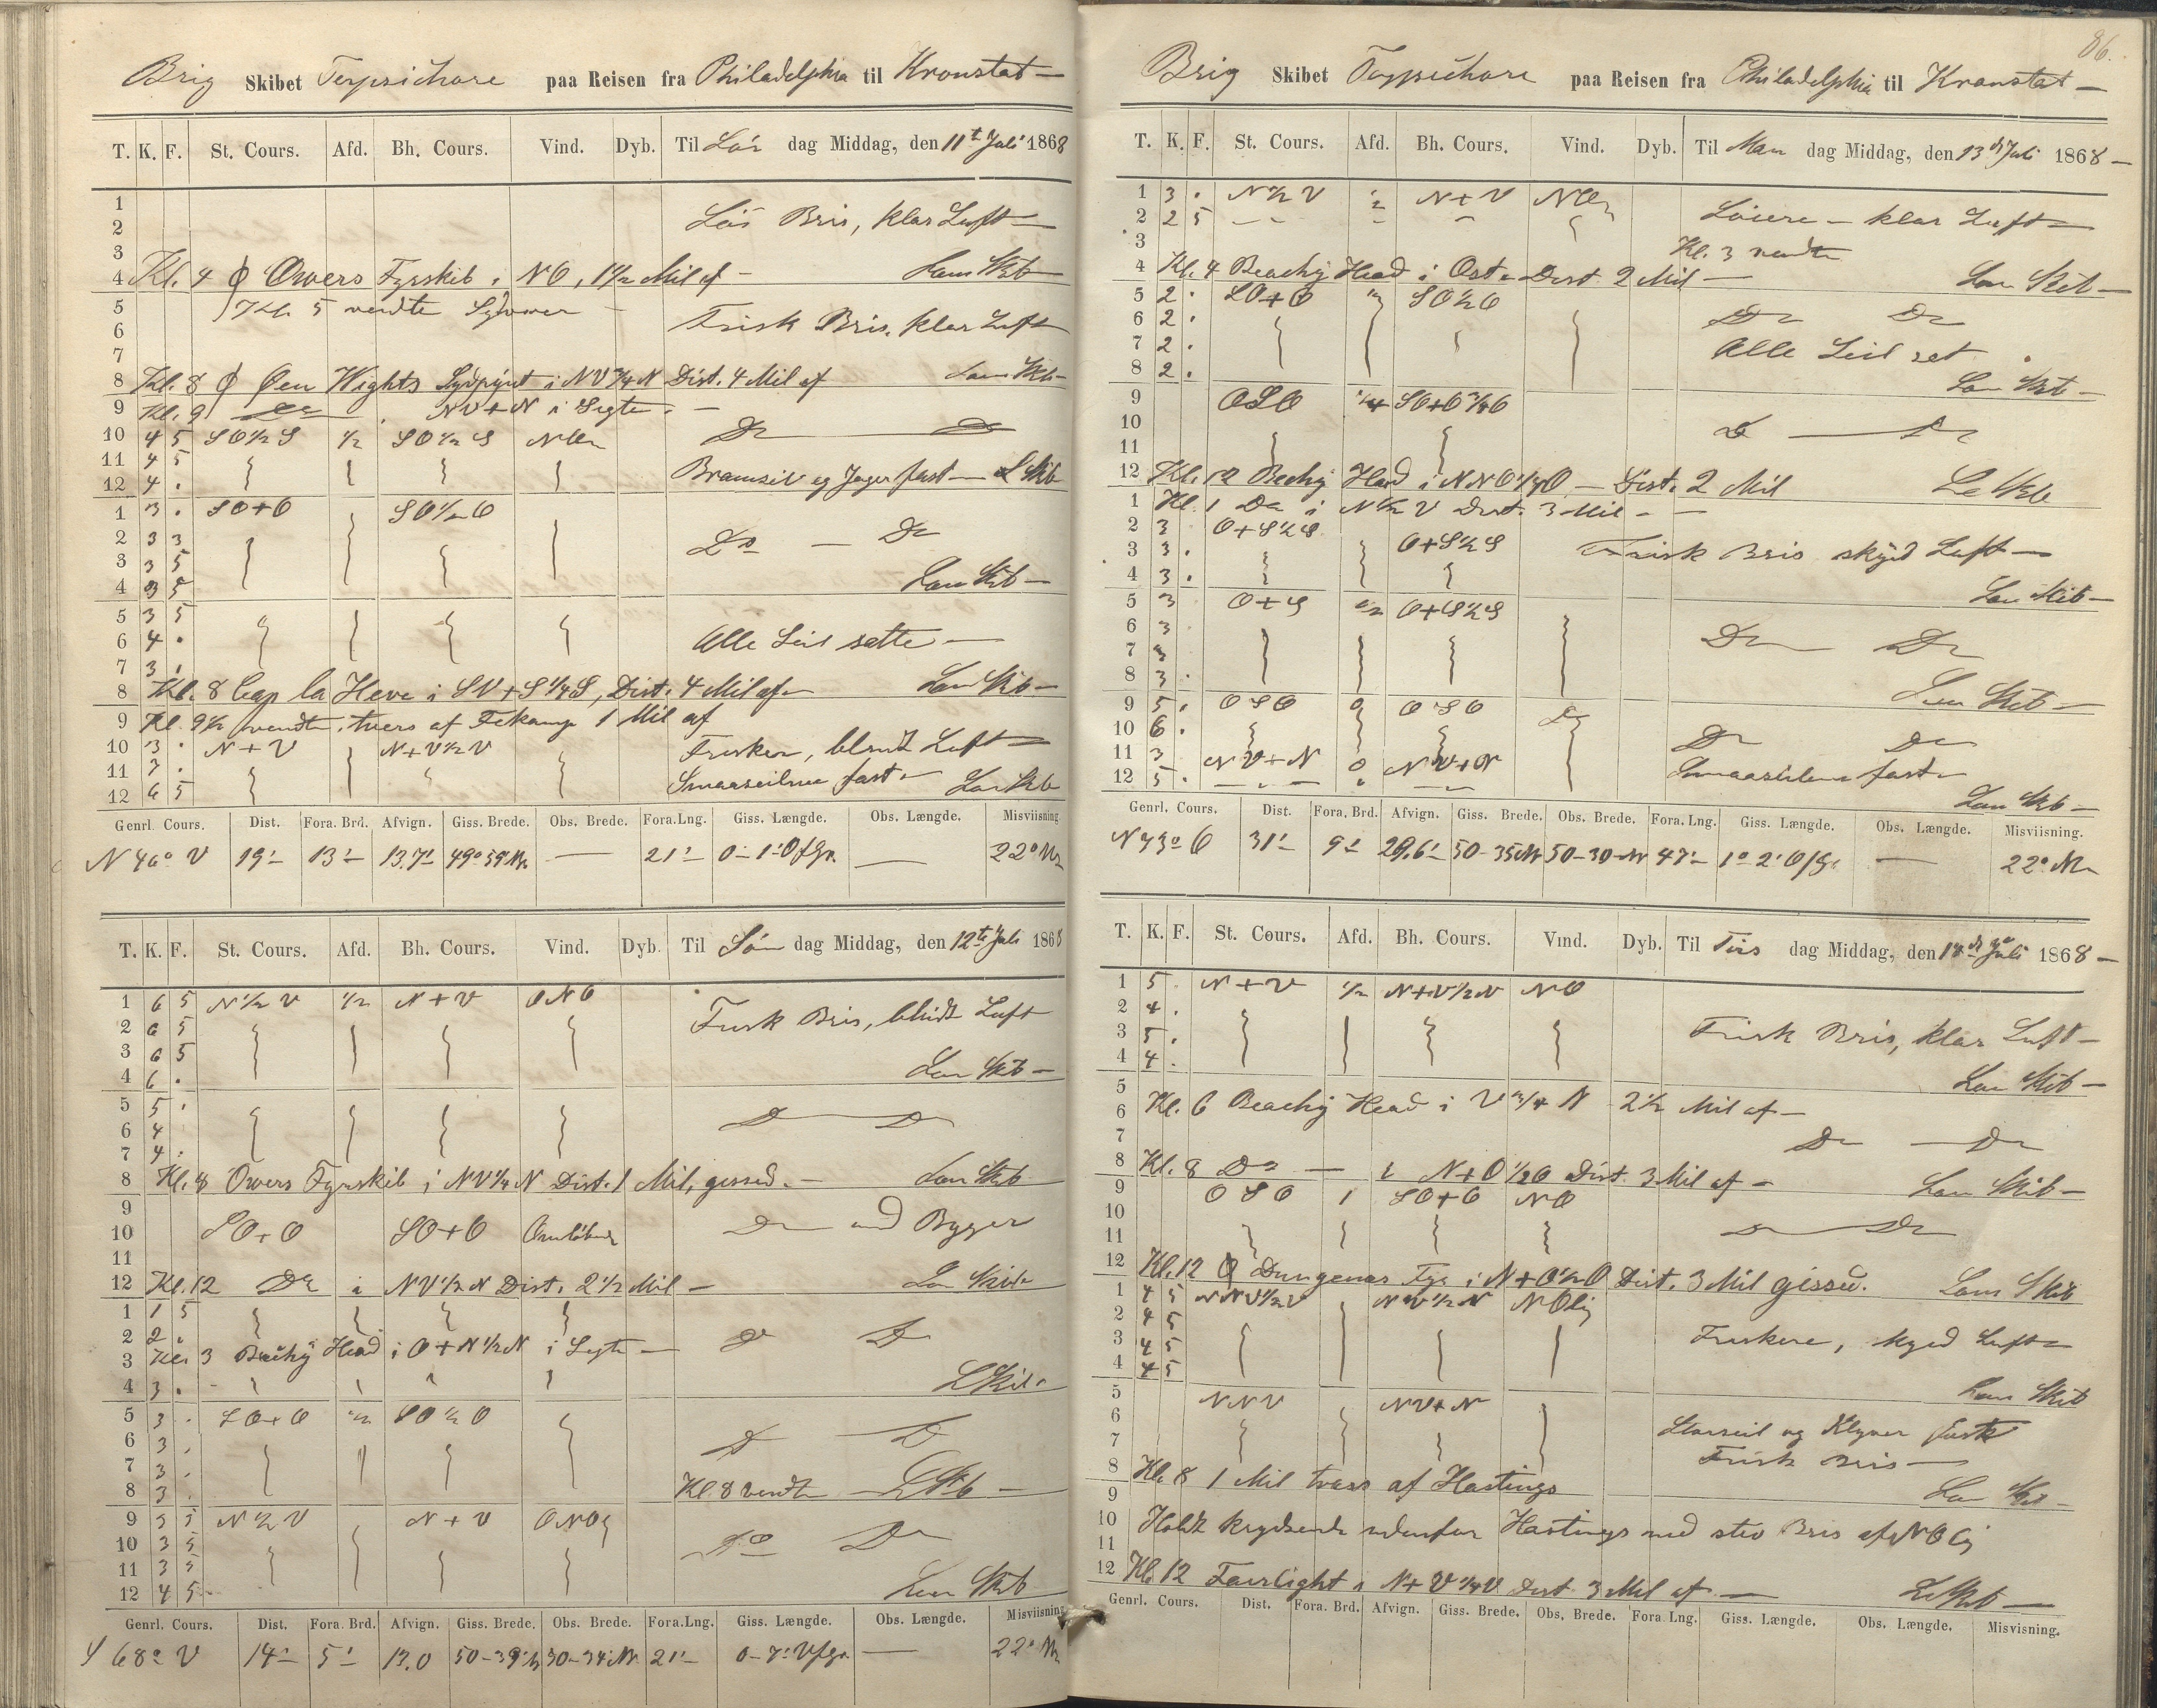 Brig Skibet Terpsichore paa Reisen fra Philadelphia til Kronstat —
T. K. F. St. Cours. Afd. Bh. Cours. Vind. Dyb. Til Lör dag Middag, den 11te Juli 1868
1
2 Lös Bris, klar Luft —
3
4 Kl. 4 Φ Owers Fyrskib i NO, 1 1/2 Mil af — Lens Skib —
5 Kl. 5 vendte
6 Frisk Bris, klar Luft
7
8 Kl. 8 Φ Öen Wights Sydpynt i NV 3/4 N Dist. 4 Mil af Lens Skib —
9 Kl. 9 NV+N i Sigte. —
10 4 5 SO 1/2 S 1/2 SO 1/2 S Do Do
11 4 5 Bramseil og Jager fast — L Skib
12 4 .
1 3 . SO+O SO 1/2 O
2 3 3 Do — Do
3 3 5
4 3 5 Lens Skib —
5 3 5
6 4 . Alle Seil satte —
7 3 .
8 Kl. 8 Cap la Heve i SV+S 1/4 S, Dist. 4 Mil af — Lens Skib —
9 Kl. 9 1/2 vendte, tvers af Fekamp 1 Mil af
10 3 . N+V N+V 1/2 V Frisken, blandt Luft —
11 7 . Smaaseilene fast —
12 6 5 Len Skb
Genrl. Cours. Dist. Fora. Brd. Afvign. Giss. Brede. Obs. Brede. Fora. Lng. Giss. Længde. Obs. Længde. Misviisning
N 46° V 19' 13' 13.7' 49° 59' N — 21' 0–1' O f Gr. — 22°
T. K. F. St. Cours. Afd. Bh. Cours. Vind. Dyb. Til Sön dag Middag, den 12te Juli 1868
1 6 5 N 1/2 V 1/2 N+V ONO
2 6 5 Frisk Bris, blidt Luft
3 6 5
4 6 . Len Skib —
5 5 .
6 4 Do Do
7 4 .
8 Kl. 8 Owers Fyrskib i NV 1/4 N Dist. 1 Mil, gissed. — Len Skib
9
10 SO+O SO+O Omlöbende Do med Byger
11
12 Kl. 12 Do i NV 1/2 N Dist. 2 1/2 Mil — Len Skib
1 1 5
2 2 . Do Do
3 Kl. 3 Beachy Head i O+N 1/2 N i Sigte —
4 3 . L Skib
5 3 . SO+O 1/2 SO 1/2 O
6 3 . Do Do
7 3 .
8 3 . Kl. 8 vendte — L Skb —
9 3 5 N 1/2 V N+V ONO
10 3 5 Do Do
11 3 5
12 4 5 Len Skib
Genrl. Cours. Dist. Fora. Brd. Afvign. Giss. Brede. Obs. Brede. Fora. Lng. Giss. Længde. Obs. Længde. Misviisning
S 68° V 14' 5' 13.0 50–39' N 50–34' N 21' 0–7' V f Gr. — 22°
86.
Brig Skibet Terpsichore paa Reisen fra Philadelphia til Kronstat —
T. K. F. St. Cours. Afd. Bh. Cours. Vind. Dyb. Til Man dag Middag, den 13de Juli 1868 —
1 3 . N 1/2 V 1/2 N+V
2 2 5 Löiere — klar Luft —
3 Kl. 3 vendte
4 Kl. 4 Beachy Head i Ost — Dist. 2 Mil — Len Skib —
5 2 . SO+O 1/2 SO 1/2 O
6 2 . Do Do
7 2 . Alle Seil set
8 2 . Len Skib —
9 OSO 1/4 SO+O 3/4 O
10 Do — Do
11
12 Kl. 12 Beachy Head i NNO 1/4 O — Dist. 2 Mil
1 Kl. 1 Do i N 1/2 V Dist. 3 Mil —
2 3 O+S 1/2 S
3 3 . O+S 1/2 S Frisk Bris skyed Luft —
4 3 . Len Skib —
5 3 O+S 1/2 O+S 1/2 S
6 3 Do Do
7 3
8 3 . Len Skib —
9 5 . OSO 0 OSO Do
10 6 . Do Do
11 3 NV+N 0 NV+N Smaaseilene fast —
12 5 . Len Skb —
Genrl. Cours. Dist. Fora. Brd. Afvign. Giss. Brede. Obs. Brede. Fora. Lng. Giss. Længde. Obs. Længde. Misviisning.
N 73° O 31' 9' 29.6' 50–35 N 50–30 N 47' 1° 2' O f Gr. — 22°
T. K. F. St. Cours. Afd. Bh. Cours. Vind. Dyb. Til Tirs dag Middag, den 14de Juli 1868 —
1 5 . N+V 1/2 N+V 1/2 V NO
2 4 .
3 5 . Frisk Bris, klar Luft —
4 4 . Len Skib —
5
6 Kl. 6 Beachy Head i V 3/4 N 2 1/2 Mil af —
7 Do — Do
8 Kl. 8 Do — i N+O 1/2 O Dist. 3 Mil af — Len Skib —
9 OSO 1 SO+O NO
10
11 Do Do
12 Kl. 12 Φ Dungenes Fyr i N+O 1/2 O Dist. 3 Mil gissed. Lens Skib
1 4 5 NNV 1/2 V NV 1/2 N NOlig
2 4 5
3 4 5 Friskere, skyed Luft —
4 4 5 Lens Skib
5 NNV NV+N
6 Storseil og Klyver fast
7 Frisk Bris —
8 Kl. 8 1 Mil tvers af Hastings
9 Len Skib —
10 Holdt krydsende udenfor Hastings med stiv Bris af NOlig
11
12 Kl. 12 Fairlight i N+V 1/4 V Dist. 3 Mil af —
Genrl. Cours. Dist. Fora. Brd. Afvign. Giss. Brede. Obs. Brede. Fora. Lng. Giss. Længde. Obs. Længde. Misvisning.